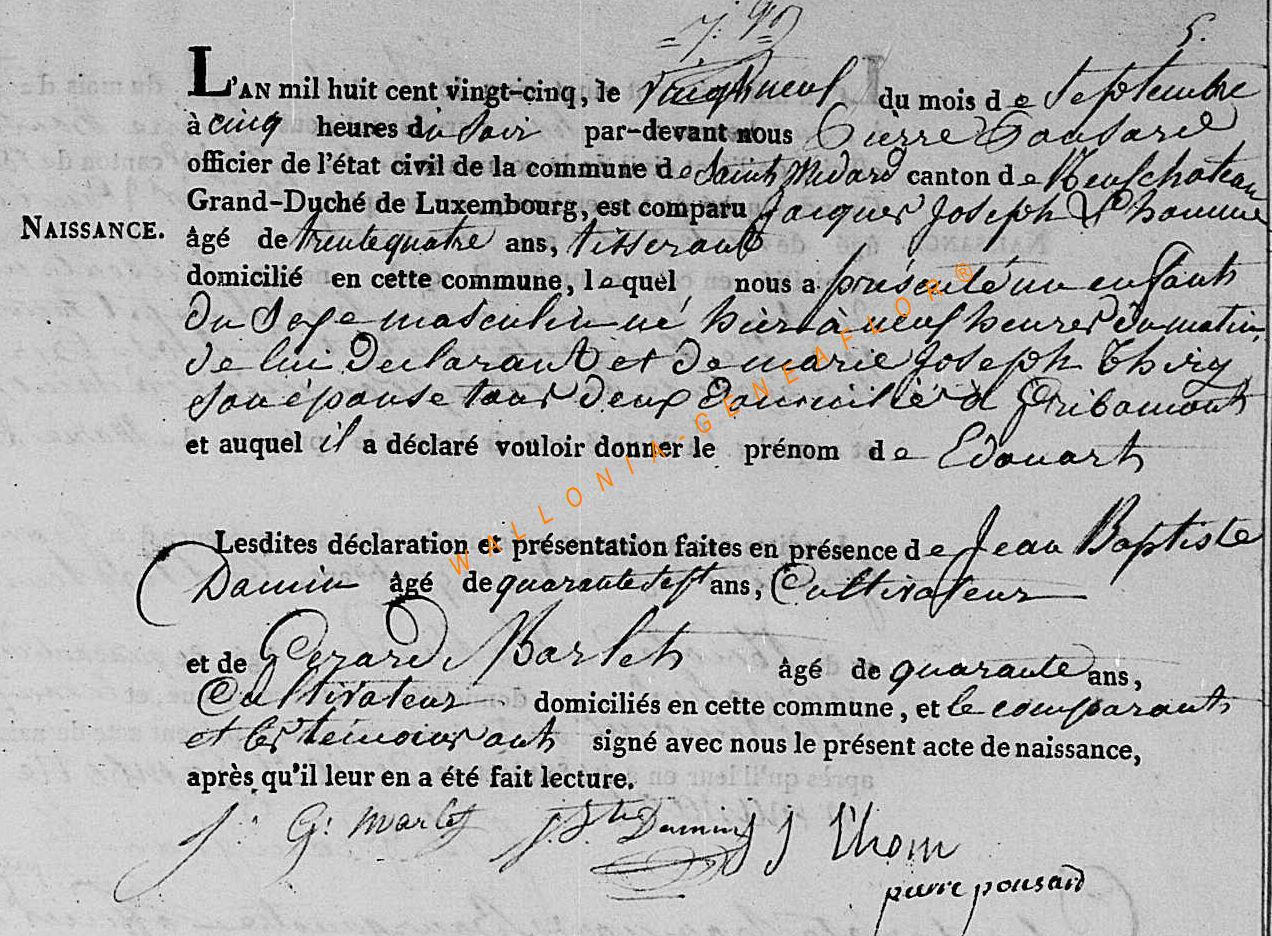 5.
L'AN mil huit cent vingt-cinq, le vingtneuf du mois de Septembre
à cinq heures du soir par-devant nous Pierre Ponsard
officier de l'état civil de la commune de Saint Medard canton de Neufchateau
Grand-Duché de Luxembourg, est comparu Jacques Joseph L'homme
NAISSANCE.
âgé de trentequatre ans, tisserant
domicilié en cette commune, lequel nous a présenté un enfant
du Sexe masculin né hier à neuf heures du matin
de lui Declarant et de marie Joseph Thiry
son épouse tous deux domicilié à Gribomont
et auquel il a déclaré vouloir donner le prénom de Edouart
WALLONIA-GENEAFLOR®
Lesdites déclaration et présentation faites en présence de Jean Baptiste
Damin âgé de quarante sept ans, Cultivateur
et de Gerard Marlet âgé de quarante ans,
Cultivateur domiciliés en cette commune, et le comparant
et les témoins ont signé avec nous le présent acte de naissance,
après qu'il leur en a été fait lecture.
G: Marlet J Bte Damin J J L'hom
pierre ponsard